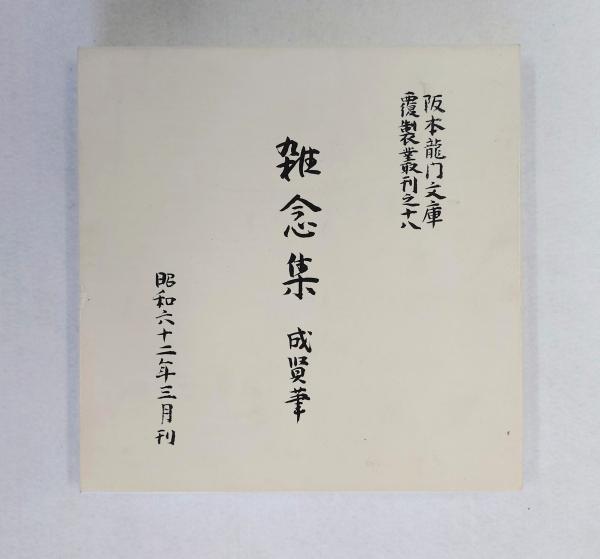 阪本龍门文庫
覆製叢刊之十八
雑念集 成賢筆
昭和六十二年三月刊